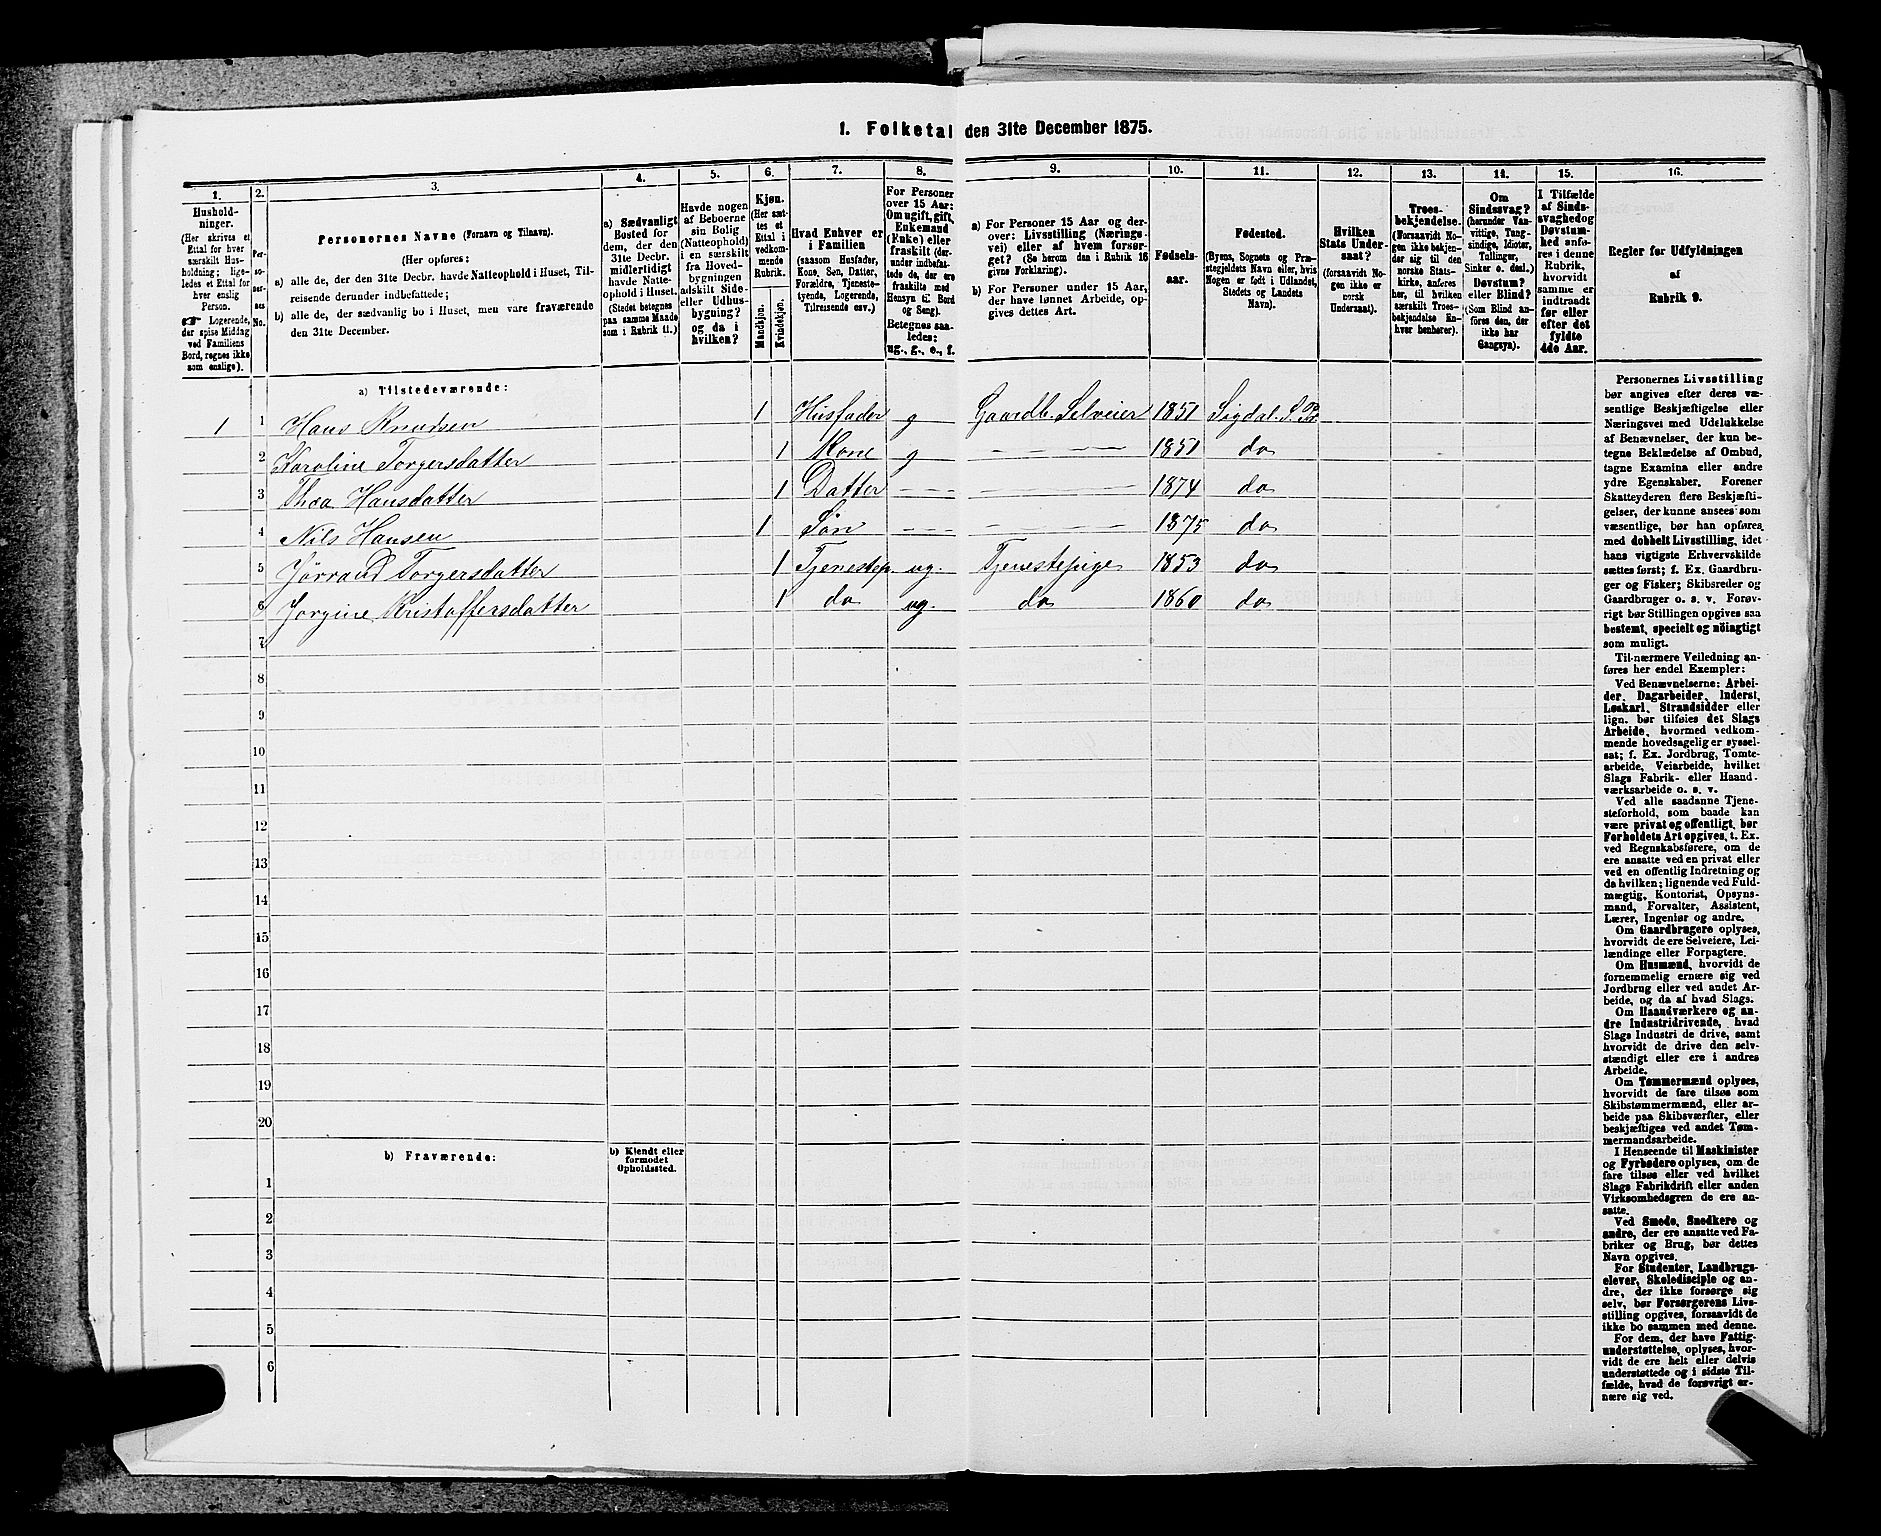 1. Folketal den 31te December 1875.
1.
2.
3.
4.
5.
6.
7.
8.
9.
10.
11.
12.
13.
14.
15.
16.
Hushold-
ninger.
(Her skrives et
Ettal for hver
særskilt Hus-
holdning; lige-
ledes et Ettal for
hver enslig
Person.
☞ Logerende,
der spise Middag
ved Familiens
Bord, regnes ikke
som enslige).
Per-
so-
ner-
nes
No.
Personernes Navne (Fornavn og Tilnavn).
(Her opføres:
a) alle de, der den 31te Decbr. havde Natteophold i Huset, Til-
reisende derunder indbefattede;
b) alle de, der sædvanlig bo i Huset, men vare fraværende
den 31te December.
a) Sædvanligt
Bosted for
dem, der den
31te Decbr.
midlertidigt
havde Natte-
ophold i Huset.
(Stedet betegnes
paa samme Maade
som i Rubrik 11.)
Havde nogen
af Beboerne
sin Bolig
(Natteophold)
i en særskilt
fra Hoved-
bygningen
adskilt Side-
eller Udhus-
bygning?
og da i
hvilken?
Kjøn.
(Her sæt-
tes et
Ettal i
vedkom-
mende
Rubrik.
Mandkjøn.
Kvindekjøn.
Hvad Enhver er
i Familien
(saasom Husfader,
Kone, Søn, Datter,
Forældre, Tjeneste-
tyende, Logerende,
Tilreisende osv.)
For Personer
over 15 Aar:
Om ugift, gift,
Enkemand
(Enke) eller
fraskilt (der-
under indbefat-
tede de, der ere
fraskilte med
Hensyn til Bord
og Seng).
Betegnes saa-
ledes:
ug., g., e., f.
a) For Personer 15 Aar og der-
over: Livsstilling (Nærings-
vei) eller af hvem forsør-
get? (Se herom den i Rubrik 16
givne Forklaring).
b) For Personer under 15 Aar,
der have lønnet Arbeide, op-
gives dettes Art.
Fødsels-
aar.
Fødested.
(Byens, Sognets og Præ-
stegjeldets Navn eller, hvis
Nogen er født i Udlandet,
Stedets og Landets
Navn).
Hvilken
Stats Under-
saat?
(forsaavidt No-
gen ikke er
norsk
Undersaat).
Troes-
bekjendelse.
(Forsaavidt No-
gen ikke bekjen-
der sig til den
norske Stats-
kirke, anføres
her, til hvilken
særskilt Troes-
bekjendelse En-
hver henhører).
Om
Sindssvag?
(herunder Van-
vittige, Tung-
sindige, Idioter,
Tullinger,
Sinker o. desl.)
Døvstum?
eller Blind?
(Som Blind an-
føres den, der
ikke har
Gangsyn).
I Tilfælde
af Sinds-
svaghed og
Døvstum-
hed anfø-
res i denne
Rubrik,
hvorvidt
samme er
indtraadt
før eller
efter det
fyldte
4de Aar.
Regler for Udfyldningen
af
Rubrik 9.
a) Tilstedeværende:
1 1 Hans Knudsen 1 Husfader g Gaardb. Selveier 1851 Sigdal. S. Pr.
2 Karoline Torgersdatter 1 Kone g — — — 1851 do
3 Thea Hansdatter 1 Datter — — — — 1874 do
4 Nils Hansen 1 Søn — — — — — 1875 do
5 Jørrand Torgersdatter 1 Tjenestep. ug. Tjenestepige 1853 do
6 Jørgine Kristoffersdatter 1 do ug. do 1860 do
7
8
9
10
11
12
13
14
15
16
17
18
19
20
b) Fraværende:
b) Kjendt eller
formodet
Opholdssted.
1
2
3
4
5
6
Personernes Livsstilling
bør angives efter deres væ-
sentlige Beskjæftigelse eller
Næringsvei med Udelukkelse
af Benævnelser, der kun be-
tegne Beklædelse af Ombud,
tagne Examina eller andre
ydre Egenskaber. Forener
Skatteyderen flere Beskjæfti-
gelser, der kunne ansees som
væsentlige, bør han opføres
med dobbelt Livsstilling, idet
hans vigtigste Erhvervskilde
sættes først; f. Ex. Gaardbru-
ger og Fisker; Skibsreder og
Gaardbruger o. s. v. Forøv-
rigt bør Stillingen opgives saa
bestemt, specielt og nöiagtigt
som muligt.
Til nærmere Veiledning an-
føres her endel Exempler:
Ved Benævnelserne: Arbei-
der, Dagarbeider, Inderst,
Løskarl, Strandsidder eller
lign. bør tilføies det Slags
Arbeide, hvormed vedkom-
mende hovedsagelig er syssel-
sat; f. Ex. Jordbrug, Tomte-
arbeide, Veiarbeide, hvilket
Slags Fabrik- eller Haand-
værksarbeide o. s. v.
Ved alle saadanne Tjene-
steforhold, som baade kan
være privat og offentligt, bør
Forholdets Art opgives, t. Ex.
ved Regnskabsførere, om de
ere ansatte ved en privat eller
ved en offentlig Indretning og
da hvilken; lignende ved Fuld-
mægtig, Kontorist, Opsyns-
mand, Forvalter, Assistent,
Lærer, Ingeniør og andre.
Om Gaardbrugere oplyses,
hvorvidt de ere Selveiere, Lei-
lændinge eller Forpagtere.
Om Husmænd, hvorvidt de
fornemmelig ernære sig ved
Jordbrug eller ved andet Ar-
beide, og da af hvad Slags.
Om Haandværkere og an-
dre Industridrivende, hvad
Slags Industri de drive, samt
hvorvidt de drive den selv-
stændigt eller ere i andres
Arbeide.
Om Tømmermænd oplyses,
hvorvidt de fare tilsøs som
Skibstømmermænd, eller ar-
beide paa Skibsværfter, eller
beskjæftiges ved andet Tøm-
mermandsarbeide.
I Henseende til Maskinister
og Fyrbødere oplyses, om de
fare tilsøs eller ved hvilket
Slags Fabrikdrift eller anden
Virksomhedsgren de ere an-
satte.
Ved Smede, Snedkere og
andre, der ere ansatte ved Fa-
briker og Brug, bør dettes
Navn opgives.
For Studenter, Landbrugs-
elever, Skoledisciple og an-
dre, der ikke forsørge sig
selv, bør Forsørgerens Livs-
stilling opgives, forsaavidt de
ikke bo sammen med denne.
For dem, der have Fattig-
understøttelse, oplyses, hvor-
vidt de ere helt eller delvis
understøttede og i sidste Til-
fælde, hvad de forøvrigt er-
nære sig ved.